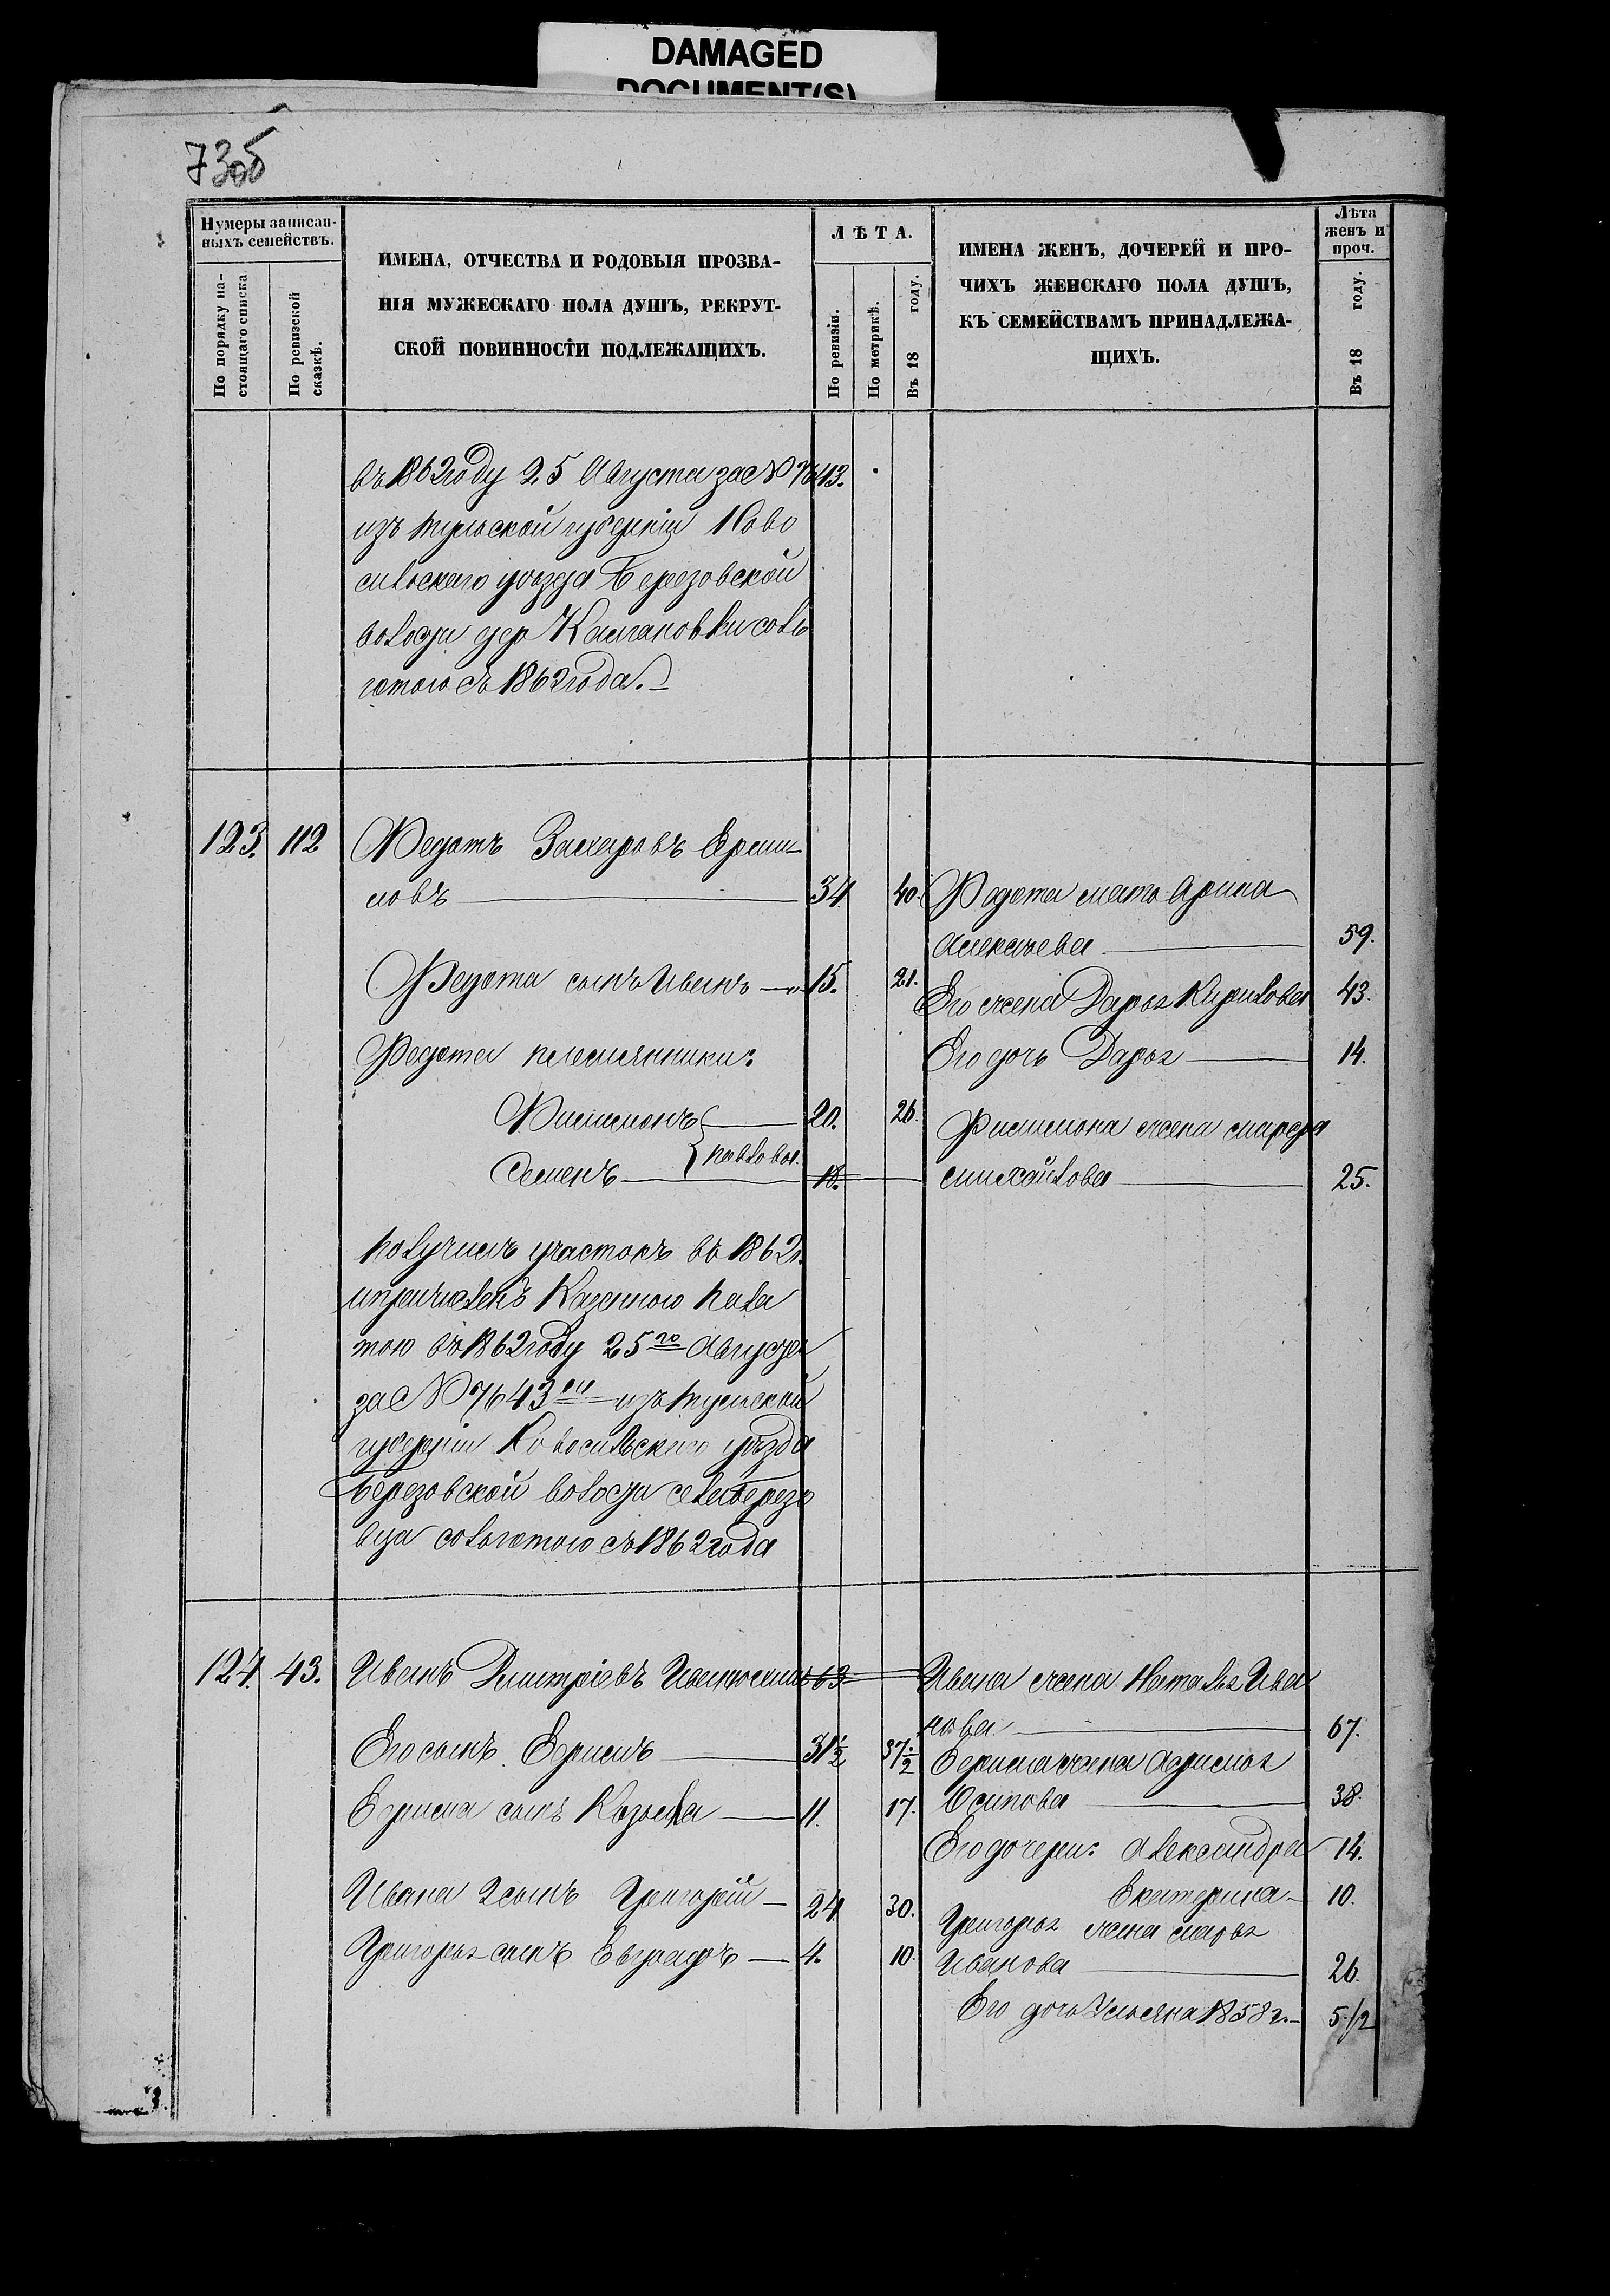 DAMAGED
DOCUMENT(S)
73об
Нумеры записан-
ныхъ семействъ.
По порядку на-
стоящаго списка
По ревизской
сказкѣ.
ИМЕНА, ОТЧЕСТВА И РОДОВЫЯ ПРОЗВА-
НІЯ МУЖЕСКАГО ПОЛА ДУШЪ, РЕКРУТ-
СКОЙ ПОВИННОСТИ ПОДЛЕЖАЩИХЪ.
ЛѢТА.
По ревизіи.
По метрикѣ.
Въ 18 году.
ИМЕНА ЖЕНЪ, ДОЧЕРЕЙ И ПРО-
ЧИХЪ ЖЕНСКАГО ПОЛА ДУШЪ,
КЪ СЕМЕЙСТВАМЪ ПРИНАДЛЕЖА-
ЩИХЪ.
Лѣта
женъ и
проч.
Въ 18 году.
въ 1862 году 25 Августа за № 7643.
изъ тульской губерніи Ново
сильскаго уѣзда Березовской
волости дер совль
готою съ 1862 года.
123. 112 Федотъ Захаровъ Ерми-
ловъ 34 40. Федота мать Арина
Алексѣева 59.
Федота сынъ Иванъ 15. 21.
Его жена Дарья Кирилова 43.
Федота племянники: Его дочь Дарья 14.
Филимонъ 20. 26. Филимона жена Марфа
Семенъ Павловы. 18. Михайлова 25.
получилъ участокъ въ 1862 г.
и причисленъ Казенною Пала
тою въ 1862 году 25го Августа
за № 7643мъ изъ тульской
губерніи Новосильскаго уѣзда
Березовской волости села Березо
вца со льготою съ 1862 года
124. 43. Иванъ Дмитріевъ 63 Ивана жена Наталья Ива
нова 67.
Его сынъ Ефимъ 31½ 37½ Ефима жена Афимья
Осипова 38.
Ефима сынъ Козьма 11. 17.
Его дочери: Александра 14.
Екатерина 10.
Ивана 2 сынъ Григорій 24 30. Григорья жена Марья
Иванова 26.
Григорья сынъ Евграфъ 4. 10.
Его дочь Ульяна 1858 г. 5½